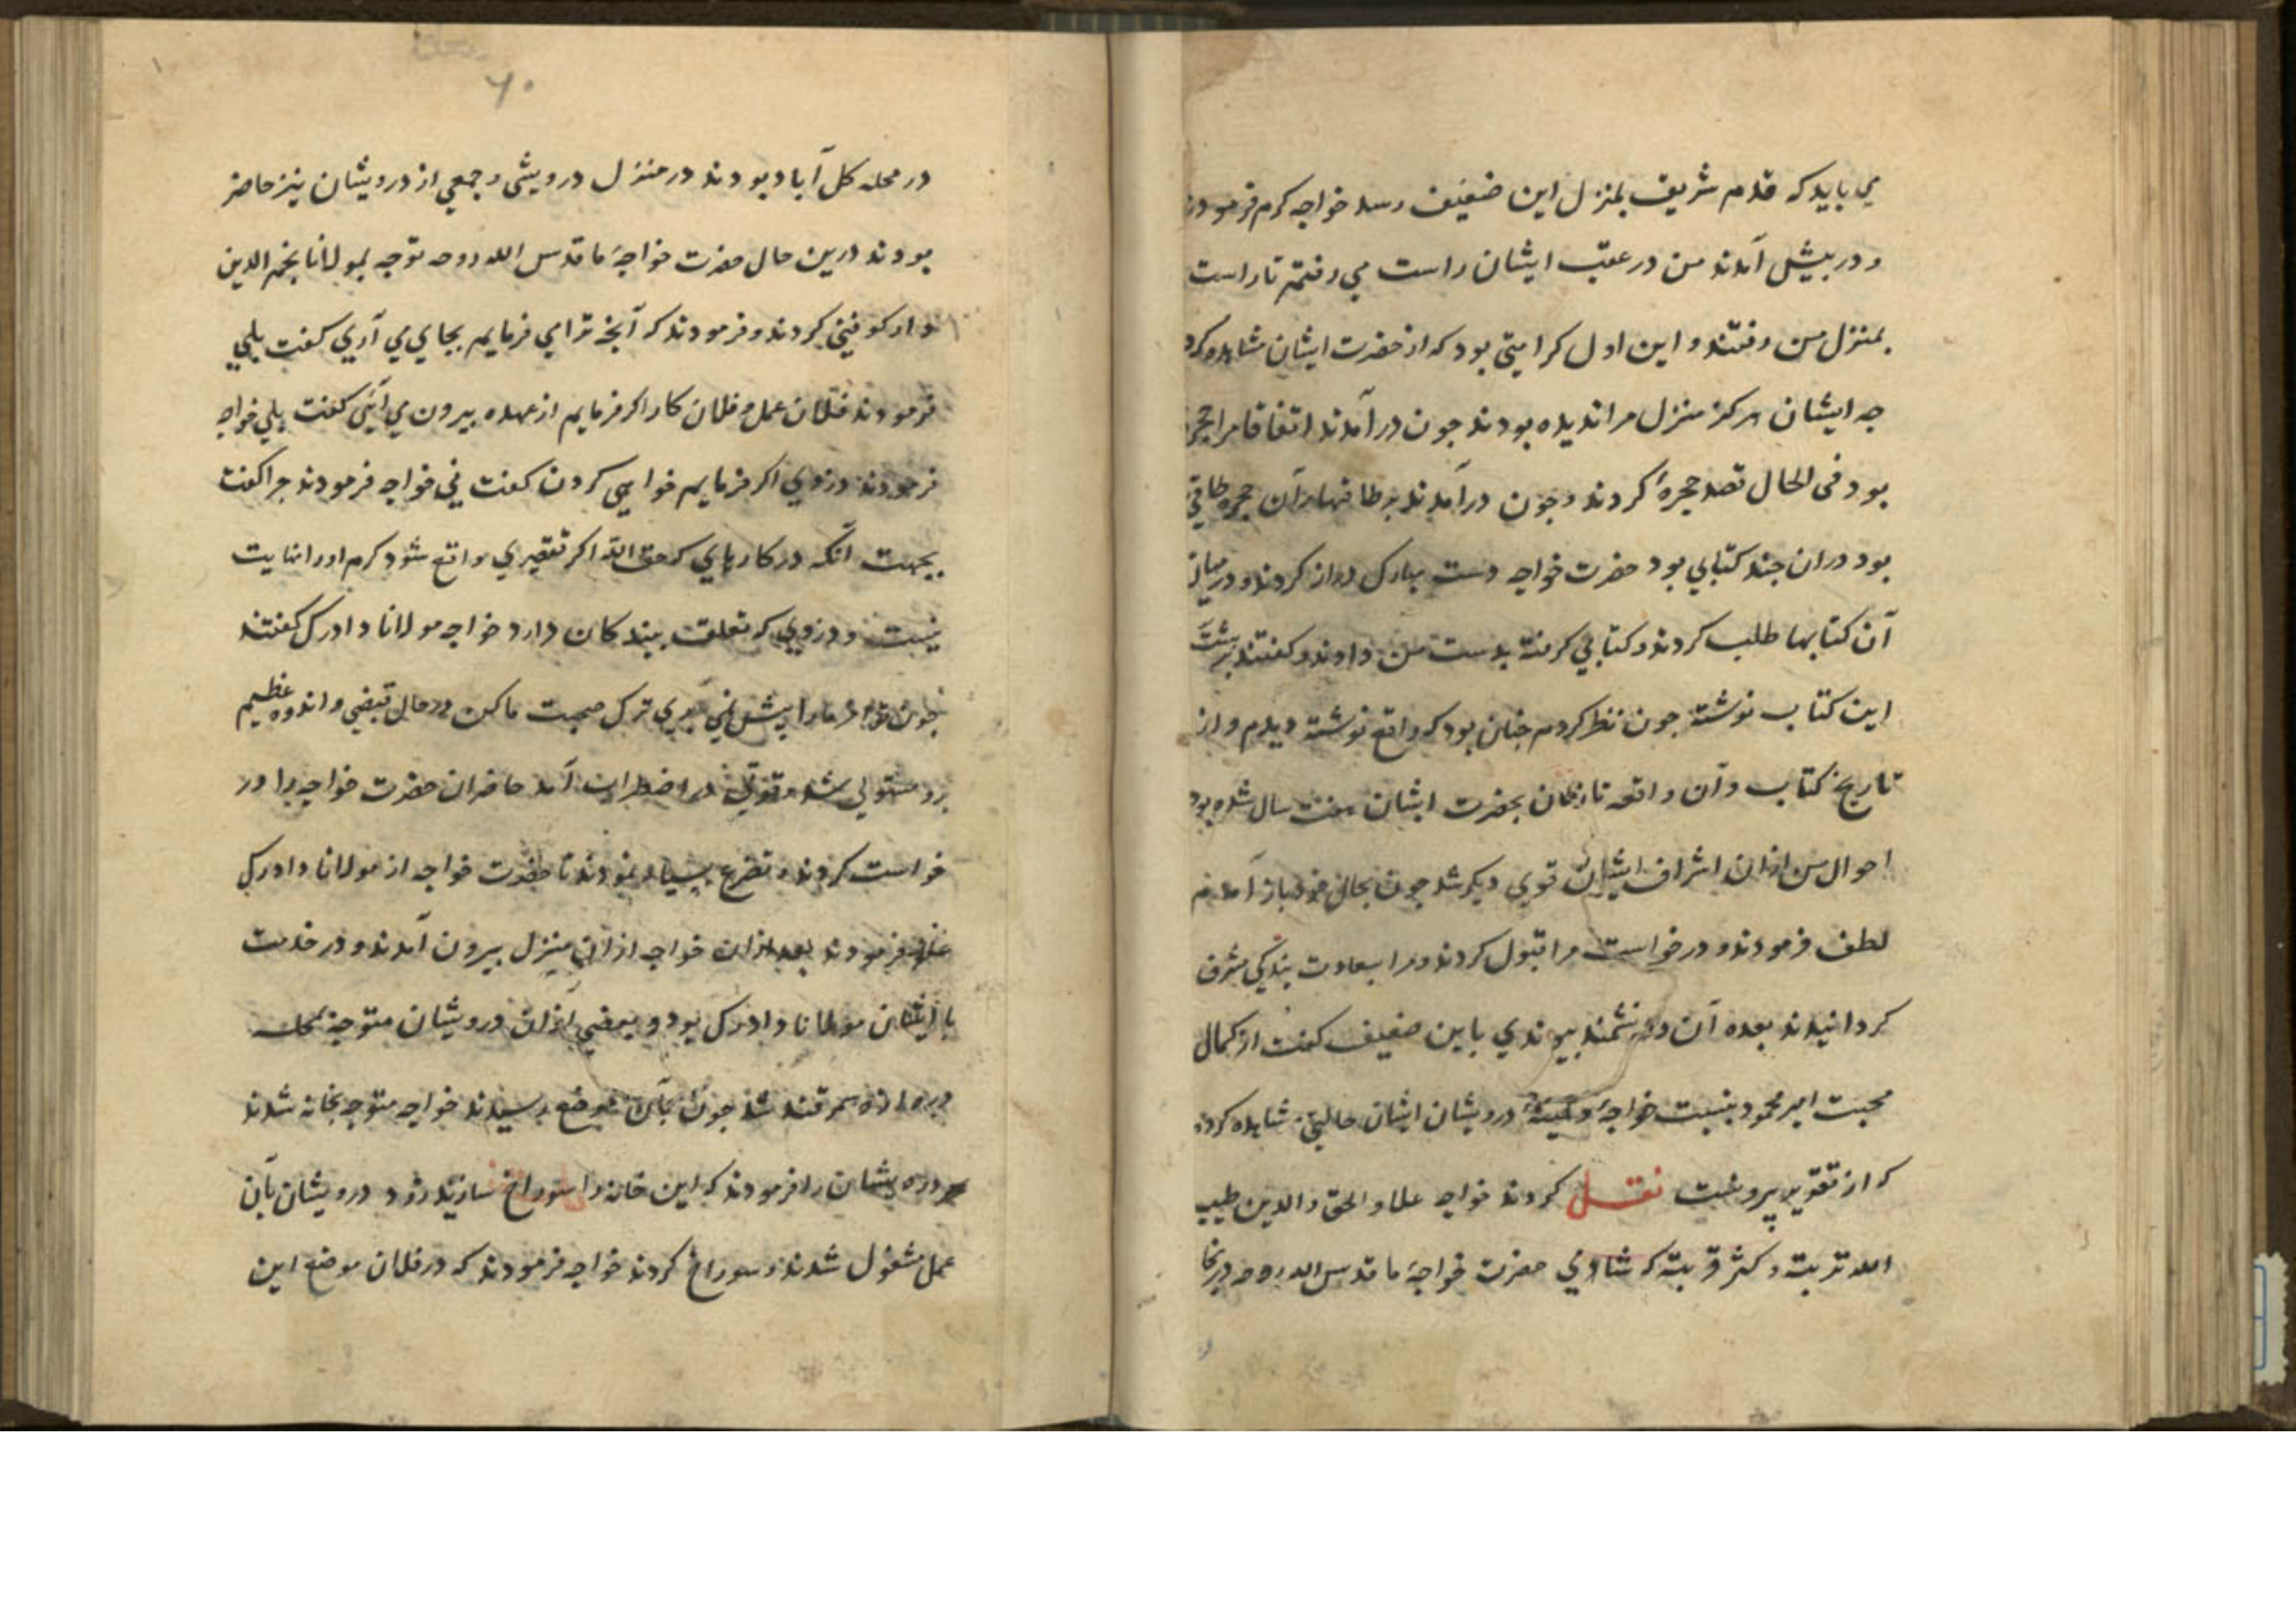 مي بايد كه قدم شريف بمنزل اين ضعيف رسد خواجه كرم فرمودند
و در پيش آمدند من در عقب ايشان راست مي رفتم تا راست
بمنزل من رفتند و اين اول كرامتي بود كه از حضرت ايشان مشاهده كرد
جه ايشان هركز منزل مرا نديده بودند جون در آمدند اتفاقا مرا حجره
بود في الحال قصد حجره كردند و جون درآمدند بر طاقها در آن حجره طاقي
بود دران جند كتابي بود حضرت خواجه دست مبارك دراز كردند و درميان
آن كتابها طلب كردند و كتابي كرفته بدست من دادند و كفتند بر پشت
اين كتاب نوشته جون نظر كردم جنان بود كه واقع نوشته ديدم و از
تاريخ كتاب و آن واقعه تا زمان بحضرت ايشان هفت سال شده بود
احوال من ازان اشراف ايشان قوي ديكر شد جون بحال خود باز آمدم
لطف فرمودند و درخواست مرا قبول كردند و مرا بسعادت بندكي مشرف
كردانيدند بعده آن دانشمند پيوندي باين ضعيف كفت از كمال
محبت امير محمود بنسبت خواجه و درويشان ايشان حالتي مشاهده كردم
كه از تقرير بيرونست نقل كردند خواجه علاء الحق و الدين طيب
الله تربته و كثر قربته كه شادي حضرت خواجهٔ ما قدس الله روحه در بخارا
۶۰
در محله كل آباد بودند در منزل درويشي و جمعي از درويشان نيز حاضر
بودند درين حال حضرت خواجهٔ ما قدس الله روحه توجه بمولانا نجم الدين
دادرك كوفيني كردند و فرمودند كه آنجه ترا مي فرمايم بجاي مي آري كفت بلي
فرمودند فلان عمل و فلان كار اكر فرمايم از عهده بيرون مي آئي كفت بلي خواجه
فرمودند دزدي اكر فرمايم خواهي كردن كفت ني خواجه فرمودند جرا كفت
بجهت آنكه در كارهاي كه حق الله اكر تقصيري واقع شود كرم او را نهايت
نيست و دزدي كه تعلق ببندكان دارد خواجه مولانا دادرك كفتند
جون تو امر ما را پيش نمي بري ترك صحبت ما كن در حال قبضي و اندوه عظيم
برو مستولي شد و قوي در اضطراب آمد حاضران حضرت خواجه را در
خواست كردند و تضرع بسيار نمودند تا حضرت خواجه از مولانا دادرك
عفو فرمودند بعد ازان خواجه ازان منزل بيرون آمدند و در خدمت
با ايشان مولانا دادرك بود و بعضي ازان درويشان متوجه محله
دروازه سمرقند شد جون بآن موضع رسيدند خواجه متوجه بخانه شدند
و درويشان را فرمودند كه اين خانه را سوراخ سازيد زود درويشان بآن
عمل مشغول شدند و سوراخ كردند خواجه فرمودند كه در فلان موضع اين